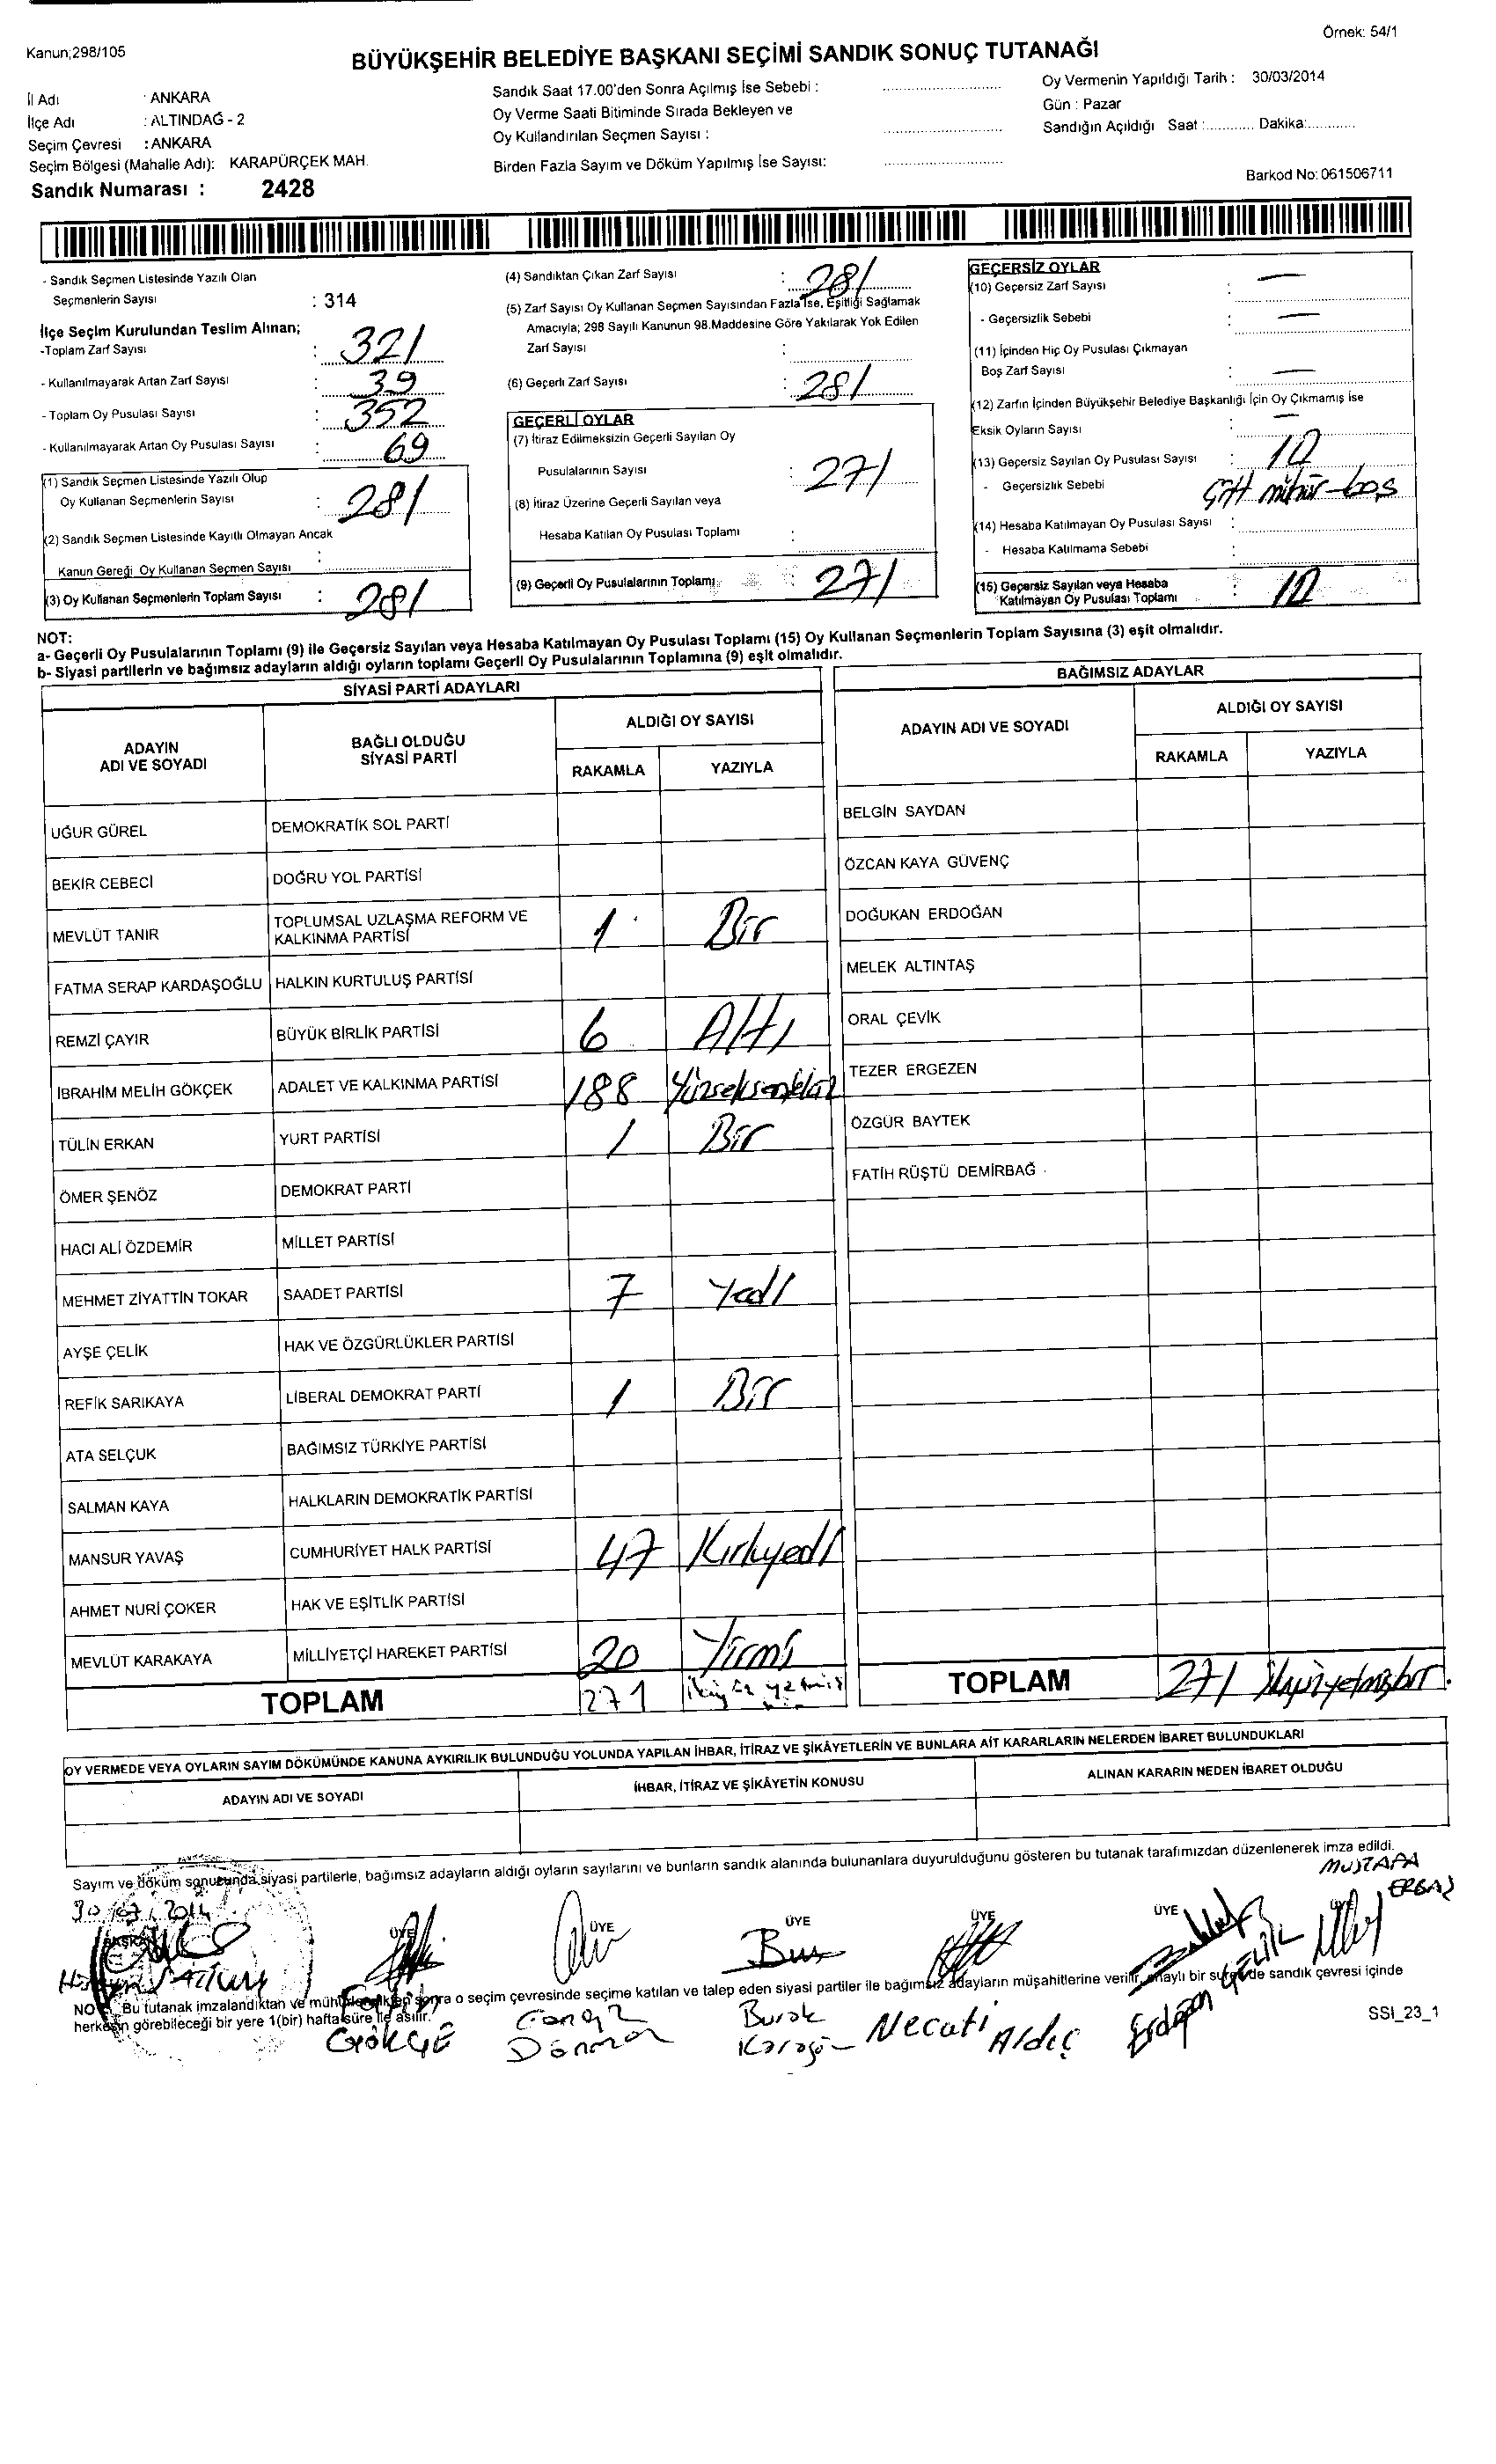 Örnek: 54/1
Kanun;298/105
BÜYÜKŞEHİR BELEDİYE BAŞKANI SEÇİMİ SANDIK SONUÇ TUTANAĞI
İl Adı : ANKARA
İlçe Adı : ALTINDAĞ - 2
Seçim Çevresi : ANKARA
Seçim Bölgesi (Mahalle Adı): KARAPÜRÇEK MAH.
Sandık Numarası : 2428
Sandık Saat 17.00'den Sonra Açılmış İse Sebebi :
Oy Verme Saati Bitiminde Sırada Bekleyen ve
Oy Kullandırılan Seçmen Sayısı :
Birden Fazla Sayım ve Döküm Yapılmış İse Sayısı:
Oy Vermenin Yapıldığı Tarih : 30/03/2014
Gün : Pazar
Sandığın Açıldığı Saat :............ Dakika:............
Barkod No: 061506711
- Sandık Seçmen Listesinde Yazılı Olan
Seçmenlerin Sayısı : 314
İlçe Seçim Kurulundan Teslim Alınan;
-Toplam Zarf Sayısı : 321
- Kullanılmayarak Artan Zarf Sayısı : 39
- Toplam Oy Pusulası Sayısı : 352
- Kullanılmayarak Artan Oy Pusulası Sayısı : 69
(1) Sandık Seçmen Listesinde Yazılı Olup
Oy Kullanan Seçmenlerin Sayısı : 281
(2) Sandık Seçmen Listesinde Kayıtlı Olmayan Ancak
Kanun Gereği Oy Kullanan Seçmen Sayısı :
(3) Oy Kullanan Seçmenlerin Toplam Sayısı : 281
(4) Sandıktan Çıkan Zarf Sayısı : 281
(5) Zarf Sayısı Oy Kullanan Seçmen Sayısından Fazla İse, Eşitliği Sağlamak
Amacıyla; 298 Sayılı Kanunun 98.Maddesine Göre Yakılarak Yok Edilen
Zarf Sayısı :
(6) Geçerli Zarf Sayısı : 281
GEÇERLİ OYLAR
(7) İtiraz Edilmeksizin Geçerli Sayılan Oy
Pusulalarının Sayısı : 271
(8) İtiraz Üzerine Geçerli Sayılan veya
Hesaba Katılan Oy Pusulası Toplamı :
(9) Geçerli Oy Pusulalarının Toplamı : 271
GEÇERSİZ OYLAR
(10) Geçersiz Zarf Sayısı : —
- Geçersizlik Sebebi : —
(11) İçinden Hiç Oy Pusulası Çıkmayan
Boş Zarf Sayısı : —
(12) Zarfın İçinden Büyükşehir Belediye Başkanlığı İçin Oy Çıkmamış İse
Eksik Oyların Sayısı : —
(13) Geçersiz Sayılan Oy Pusulası Sayısı : 10
- Geçersizlik Sebebi Çift mühür-boş
(14) Hesaba Katılmayan Oy Pusulası Sayısı :
- Hesaba Katılmama Sebebi :
(15) Geçersiz Sayılan veya Hesaba
Katılmayan Oy Pusulası Toplamı : 10
NOT:
a- Geçerli Oy Pusulalarının Toplamı (9) ile Geçersiz Sayılan veya Hesaba Katılmayan Oy Pusulası Toplamı (15) Oy Kullanan Seçmenlerin Toplam Sayısına (3) eşit olmalıdır.
b- Siyasi partilerin ve bağımsız adayların aldığı oyların toplamı Geçerli Oy Pusulalarının Toplamına (9) eşit olmalıdır.
SİYASİ PARTİ ADAYLARI
ADAYIN ADI VE SOYADI
BAĞLI OLDUĞU SİYASİ PARTİ
ALDIĞI OY SAYISI
RAKAMLA YAZIYLA
UĞUR GÜREL DEMOKRATİK SOL PARTİ
BEKİR CEBECİ DOĞRU YOL PARTİSİ
MEVLÜT TANIR TOPLUMSAL UZLAŞMA REFORM VE KALKINMA PARTİSİ 1 Bir
FATMA SERAP KARDAŞOĞLU HALKIN KURTULUŞ PARTİSİ
REMZİ ÇAYIR BÜYÜK BİRLİK PARTİSİ 6 Altı
İBRAHİM MELİH GÖKÇEK ADALET VE KALKINMA PARTİSİ 188 Yüzseksensekiz
TÜLİN ERKAN YURT PARTİSİ 1 Bir
ÖMER ŞENÖZ DEMOKRAT PARTİ
HACI ALİ ÖZDEMİR MİLLET PARTİSİ
MEHMET ZİYATTİN TOKAR SAADET PARTİSİ 7 Yedi
AYŞE ÇELİK HAK VE ÖZGÜRLÜKLER PARTİSİ
REFİK SARIKAYA LİBERAL DEMOKRAT PARTİ 1 Bir
ATA SELÇUK BAĞIMSIZ TÜRKİYE PARTİSİ
SALMAN KAYA HALKLARIN DEMOKRATİK PARTİSİ
MANSUR YAVAŞ CUMHURİYET HALK PARTİSİ 47 Kırkyedi
AHMET NURİ ÇOKER HAK VE EŞİTLİK PARTİSİ
MEVLÜT KARAKAYA MİLLİYETÇİ HAREKET PARTİSİ 20 Yirmi
TOPLAM 271 ikiyüz yetmiş bir
BAĞIMSIZ ADAYLAR
ADAYIN ADI VE SOYADI
ALDIĞI OY SAYISI
RAKAMLA YAZIYLA
BELGİN SAYDAN
ÖZCAN KAYA GÜVENÇ
DOĞUKAN ERDOĞAN
MELEK ALTINTAŞ
ORAL ÇEVİK
TEZER ERGEZEN
ÖZGÜR BAYTEK
FATİH RÜŞTÜ DEMİRBAĞ
TOPLAM 271 ikiyüzyetmişbir.
OY VERMEDE VEYA OYLARIN SAYIM DÖKÜMÜNDE KANUNA AYKIRILIK BULUNDUĞU YOLUNDA YAPILAN İHBAR, İTİRAZ VE ŞİKÂYETLERİN VE BUNLARA AİT KARARLARIN NELERDEN İBARET BULUNDUKLARI
ADAYIN ADI VE SOYADI
İHBAR, İTİRAZ VE ŞİKÂYETİN KONUSU
ALINAN KARARIN NEDEN İBARET OLDUĞU
Sayım ve döküm sonucunda siyasi partilerle, bağımsız adayların aldığı oyların sayılarını ve bunların sandık alanında bulunanlara duyurulduğunu gösteren bu tutanak tarafımızdan düzenlenerek imza edildi.
30/03/2014
MUSTAFA
BAŞKAN ÜYE ÜYE ÜYE ÜYE ÜYE
NOT: Bu tutanak imzalandıktan ve mühürlendikten sonra o seçim çevresinde seçime katılan ve talep eden siyasi partiler ile bağımsız adayların müşahitlerine verilir, onaylı bir suretide sandık çevresi içinde
herkesin görebileceği bir yere 1(bir) hafta süre ile asılır.
GÖKÇE
Burak
Necati
Erdoğan ÇELİK
SSI_23_1